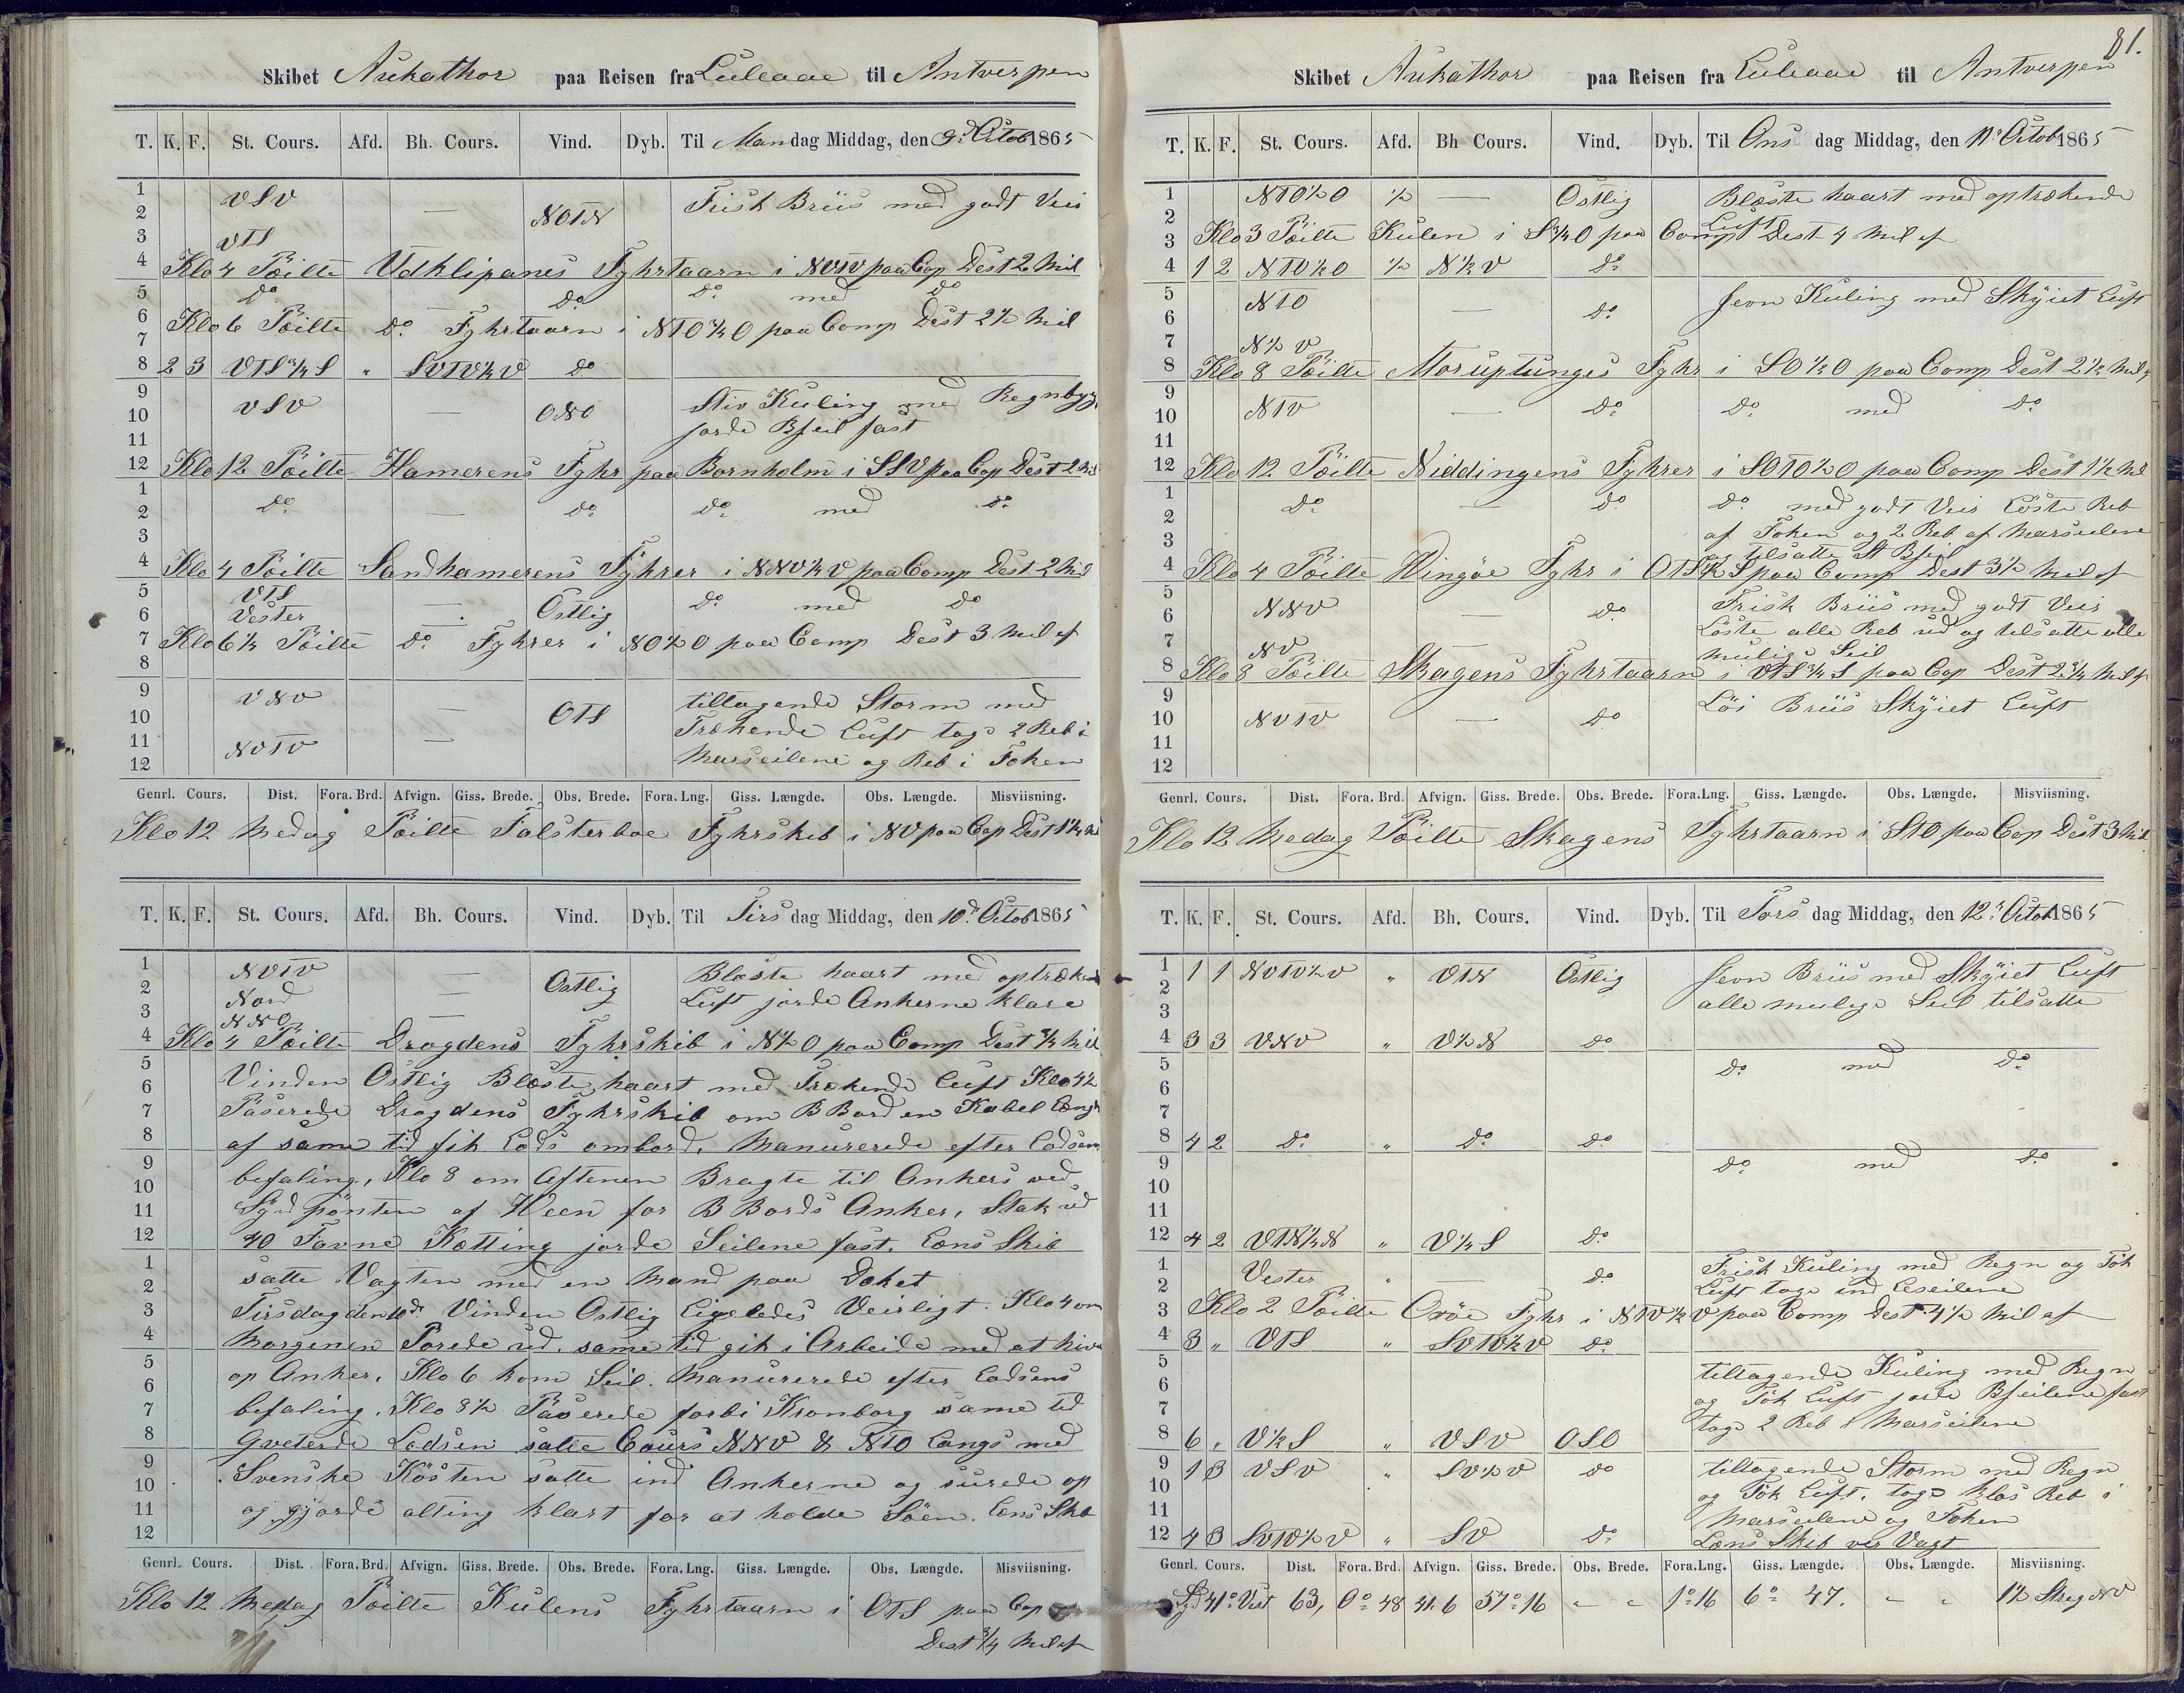 Skibet Aukathor paa Reisen fra Luleaae til Antverpen
T. K. F. St. Cours. Afd. Bh. Cours. Vind. Dyb. Til Mandag Middag, den 9d Octob 1865
1 VSV — Frisk Briis med godt Veir
2 NOTN
3 VTS
4 Klo 4 Pöilte Udklipanes Fyhrtaarn i NVTV paa Cop Dest 2 Mil
5 do do do med do
6 Klo 6 Pöilte do Fyhrtaarn i NTO¾O paa Comp Dest 2½ Mil
7
8 2 3 VTS¾S " SVTV½V do
9 VSV — ONO Stiv Kuling med Regnbyg.
10 jorde Bseil fast
11
12 Klo 12 Pöilte Hamerens Fyhr paa Bornholm i SSV paa Cop Dest 2 Mil
1 do — do do med do
2
3
4 Klo 4 Pöilte Sandhamerens Fyhrer i NNV½V paa Comp Dest 2 Mil
5 VTS — do med do
6 Vester Ostlig
7 Klo 6½ Pöilte do Fyhrer i NO½O paa Comp Dest 3 Mil af
8
9 VNV — tiltagende Storm med
10 OTS Trækende Luft togs 2 Reb i
11 NVTV — Marseilene og Reb i Foken
12
Genrl. Cours. Dist. Fora. Brd. Afvign. Giss. Brede. Obs. Brede. Fora. Lng. Giss. Længde. Obs. Længde. Misviisning.
Klo 12 Medag Pöilte Falsterboe Fyhrskib i NV paa Cop Dest 1¼ Mil
T. K. F. St. Cours. Afd. Bh. Cours. Vind. Dyb. Til Tirsdag Middag, den 10d Octob 1865
1 NVTV — Ostlig Blæste haart med optræken
2 Nord — Luft jorde Ankerne klare
3 NNO —
4 Klo 4 Pöilte Drogdens Fyhrskib i N½O paa Comp Dest ¾ Mil
5 Vinden Ostlig Blæste haart med Trækende Luft Klo 4½
6
7 Paserede Drogdens Fyhrskib om B Bord en Kabel Længd
8 af same tid fik Lods ombord. Manurerede efter Lodsens
9 befaling, Klo 8 om Aftenen Bragte til Ankers ved
10
11 Sydpönten af Hveen for B Bords Anker, Stak ud
12 40 Favne Kætting jorde Seilene fast. Læns Skib
1 satte Vagten med en Mand paa Doket
2
3 Tirsdag den 10d. Vinden Ostlig Ligeledes Veirligt. Klo 4 om
4 Morgenen Porede ud. same tid gik i Arbeide med at hive
5 op Anker. Klo 6 kom Seil. Manurerede efter Lodsens
6
7 befaling. Klo 8½ Paserede forbi Kronborg same tid
8 Qveterde Lodsen satte Cours NNV & NTO Langs med
9 Svenske Kösten satte ind Ankerne og surede op
10
11 og gjorde alting klart for at holde Söen. Læns Skb
12
Genrl. Cours. Dist. Fora. Brd. Afvign. Giss. Brede. Obs. Brede. Fora. Lng. Giss. Længde. Obs. Længde. Misviisning.
Klo 12 Medag Pöilte Kulens Fyhrtaarn i OTS paa Cop
Dest ¾ Mil af
81.
Skibet Aukathor paa Reisen fra Luleaae til Antverpen
T. K. F. St. Cours. Afd. Bh Cours. Vind. Dyb. Til Onsdag Middag, den 11d Octob 1865
1 NTO½O ½ — Ostlig Blæste haart med optrækende
2 Luft
3 Klo 3 Pöilte Kulen i S¾O paa Comp Dest 4 Mil af
4 1 2 NTO½O ½ N½V do
5 NTO — Jevn Kuling med Skyiet Luft
6 do
7 N½V
8 Klo 8 Pöilte Moruptunges Fyhr i SO½O paa Comp Dest 2½ Mil af
9
10 NTV — do do med do
11
12 Klo 12 Pöilte Niddingens Fyhrer i SOTO½O paa Comp Dest 1½ Mil
1 do — do do med godt Veir Löste Reb
2
3 af Foken og 2 Reb af Marseilene
og tilsatte St Bseil
4 Klo 4 Pöilte Wingöe Fyhr i OTS½S paa Comp Dest 3½ Mil af
5
6 NNV — do Frisk Briis med godt Veir
7 Löste alle Reb ud og tilsatte alle
NV mulige Seil
8 Klo 8 Pöilte Skagens Fyhrtaarn i VTS¾S paa Cop Dest 2¾ Mil af
9 Löi Briis Skyiet Luft
10 NVTV — do
11
12
Genrl. Cours. Dist. Fora. Brd. Afvign. Giss. Brede. Obs. Brede. Fora.Lng. Giss. Længde. Obs. Længde. Misviisning.
Klo 12 Medag Pöilte Skagens Fyhrtaarn i STO paa Cop Dest 3 Mil
T. K. F. St. Cours. Afd. Bh. Cours. Vind. Dyb. Til Torsdag Middag, den 12d Octob 1865
1 1 1 NVTV½V " VTN Ostlig Jevn Briis med Skyiet Luft
2 alle mulige Seil tilsatte
3
4 3 3 VNV " V½N do
5 do med do
6
7
8 4 2 do " do do
9 do med do
10
11
12 4 2 VTN½N " V¼S do
1 Vester " — do Frisk Kuling med Regn og Tök
2 Luft togs ind Leseilene
3 Klo 2 Pöilte Oxöe Fyhr i NTV½V paa Comp Dest 4½ Mil af
4 3 " VTS " SVTV½V do
5 tiltagende Kuling med Regn
6 og Tök Luft jorde Bseilene fast
7 togs 2 Reb i Marseilene
8 6 " V½S " VSV OSO
9 1 3 VSV " SV½V do tiltagende Storm med Regn
10 og Tök Luft, togs klos Reb i
11 Marseilene og Foken
12 4 3 SVTV½V " SV do Læns Skib ves Vagt
Genrl. Cours. Dist. Fora. Brd. Afvign. Giss. Brede. Obs. Brede. Fora.Lng. Giss. Længde. Obs. Længde. Misviisning.
Syd 41° Vest 63, 0° 48 41.6 57° 16 - - 1° 16 6° 47. - - 1½ Streg NV